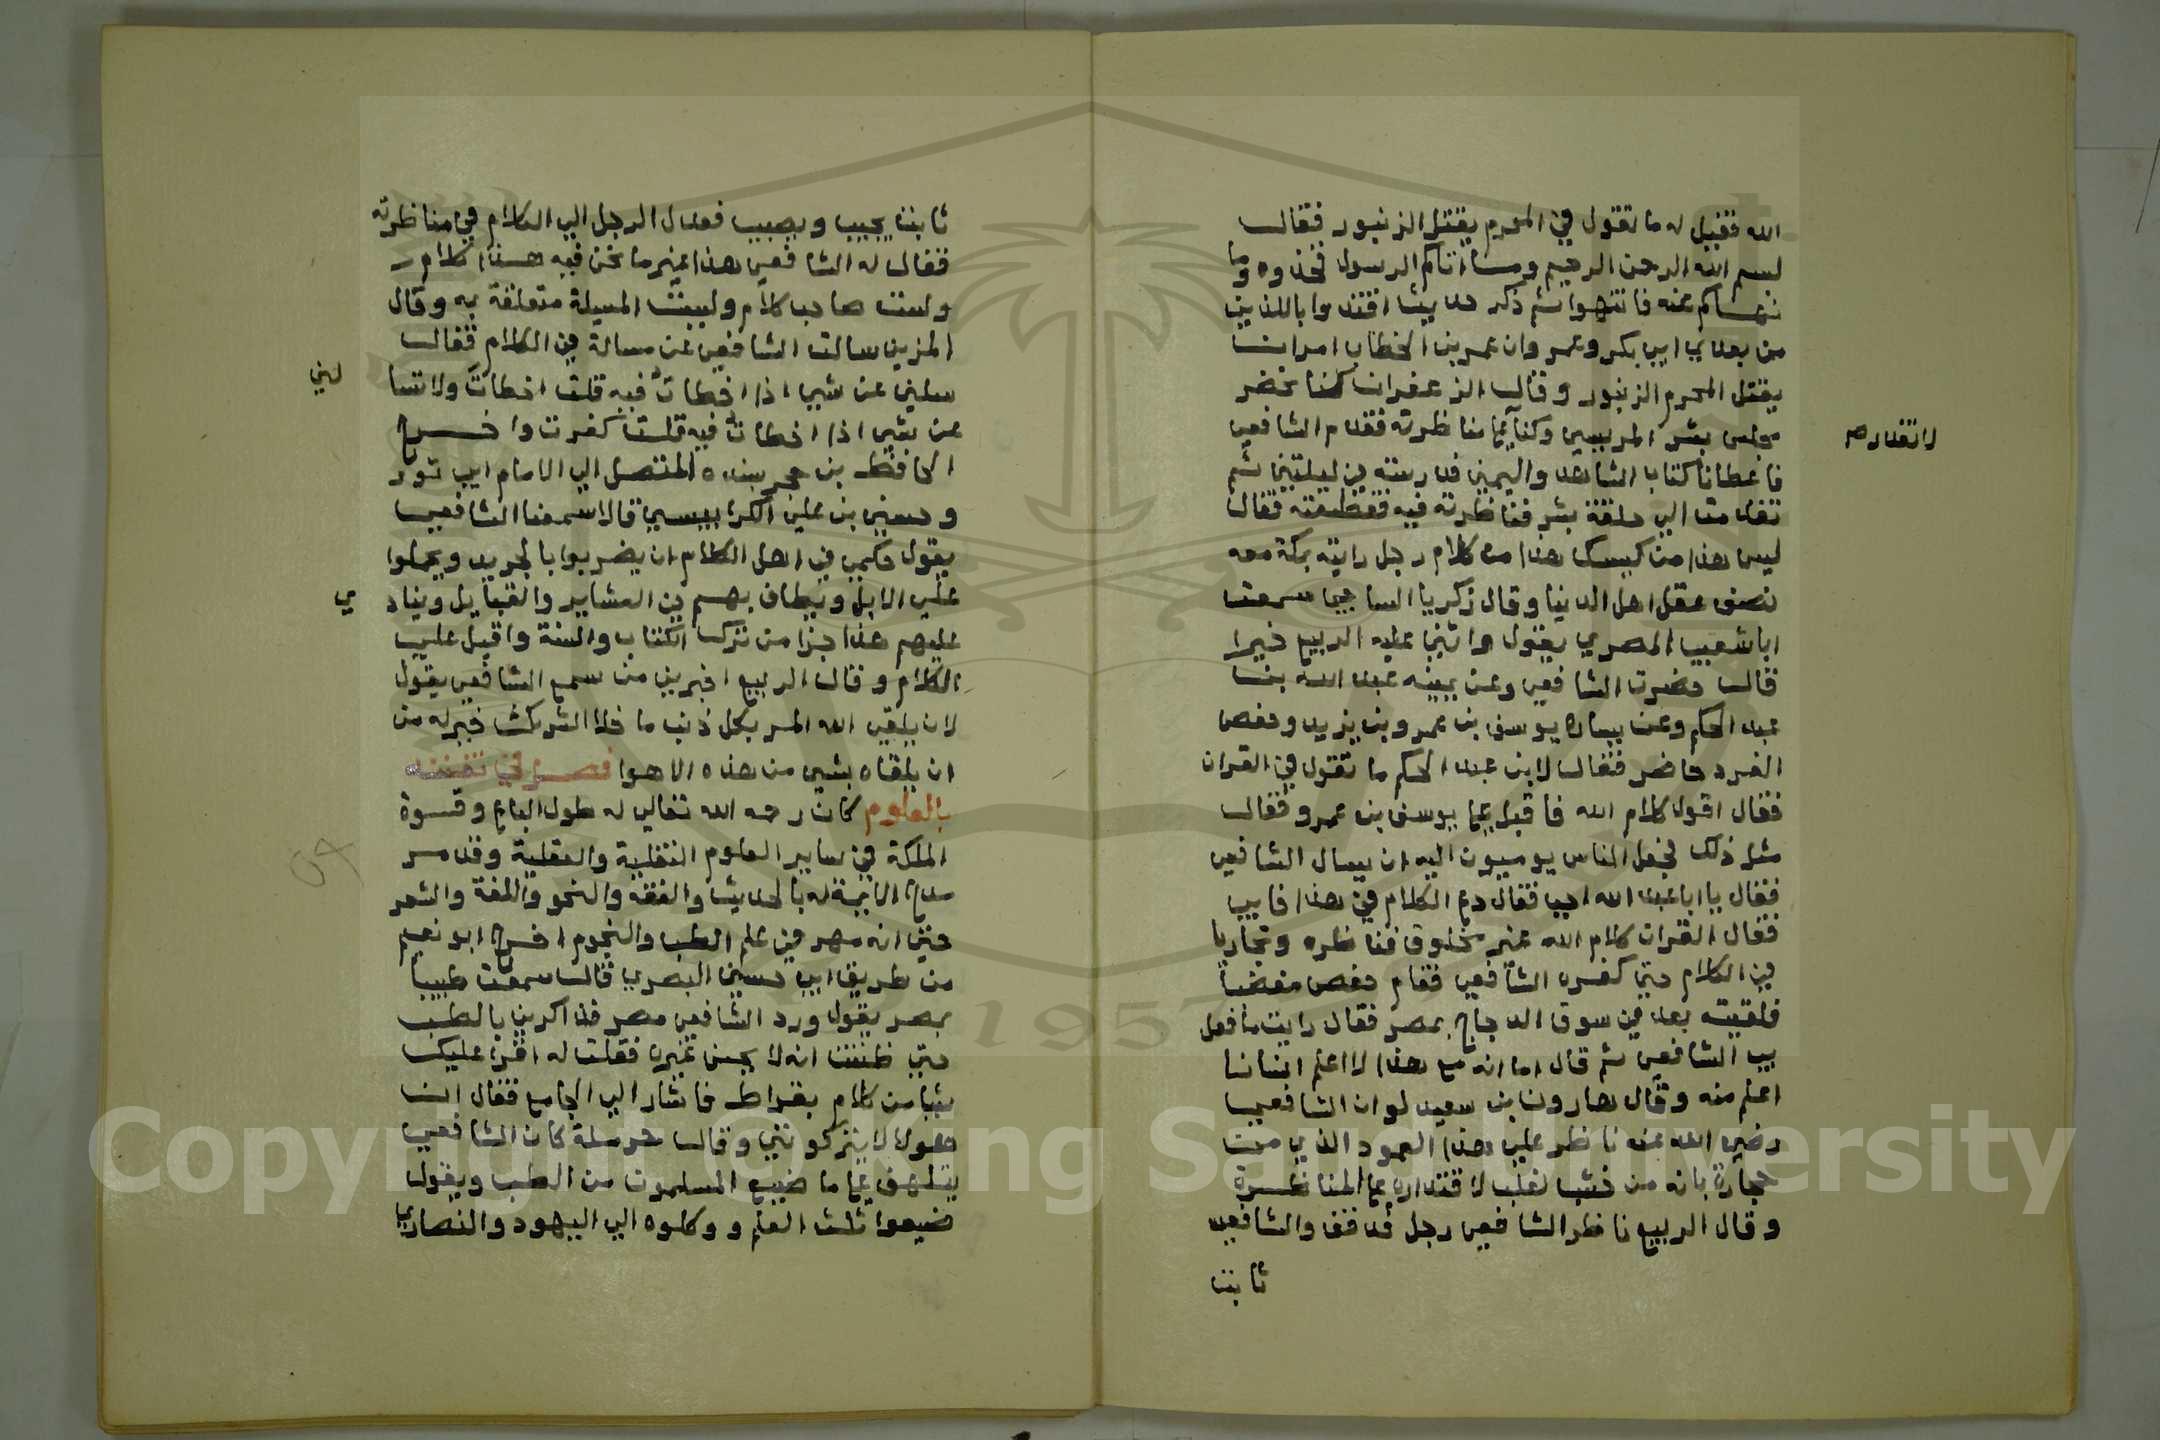 الله فقيل له ما تقول في المحرم يقتل الزنبور فقال
بسم الله الرحمن الرحيم وما اتاكم الرسول فخذوه وما
نهاكم عنه فانتهوا ثم ذكر حديث اقتدوا باللذين
من بعدي ابي بكر وعمر وان عمر بن الخطاب امر ان
يقتل المحرم الزنبور وقال الزعفران كنا نحضر
مجلس بشر المريسي وكنا مناظرته فقدم الشافعي
لا نقدر
فاعطانا كتاب الشاهد واليمين فدرسته في ليلتين ثم
تقدمت الي حلقة بشر فناظرته فيه فقطعته فقال
ليس هذا من كيسك هذا من كلام رجل رايته بمكة معه
نصف عقل اهل الدنيا وقال زكريا الساجي سمعت
ابا شعيب المصري يقول واثني عليه الربيع خيرا
قال حضرت الشافعي وعن يمينه عبد الله بن
عبد الحكم وعن يساره يوسف بن عمرو بن يزيد وحفص
الفرد حاضر فقال لابن عبد الحكم ما تقول في القران
فقال اقول كلام الله فاقبل علي يوسف بن عمرو فقال
مثل ذلك فجعل الناس يوميون اليه ان يسال الشافعي
فقال يا ابا عبد الله اجب فقال دع الكلام في هذا فابي
فقال القران كلام الله غير مخلوق فناظره وتجاريا
في الكلام حتي كفره الشافعي فقام حفص مغضبا
فلقيته بعد في سوق الدجاج بمصر فقال رايت ما فعل
بي الشافعي ثم قال اما انه مع هذا لا اعلم انسانا
اعلم منه وقال هارون بن سعيد لو ان الشافعي
رضي الله عنه ناظر علي هذا العمود الذي من
حجارة بانه من خشب لغلب لاقتداره علي المناظرة
وقال الربيع ناظر الشافعي رجل فدقق والشافعي
ثابت
ثابت يجيب ويصيب فعدل الرجل الي الكلام في مناظرته
فقال له الشافعي هذا غير ما نحن فيه هذا كلام
ولست صاحب كلام وليست المسيلة متعلقة به وقال
المزني سالت الشافعي عن مسالة في الكلام فقال
سلني عن شي اذا اخطات فيه قلت اخطات ولا تسا
لني
عن شي اذا اخطات فيه قلت كفرت واخرج
الحافظ بن حجر بسنده المتصل الي الامام ابي ثور
وحسين بن علي الكرابيسي قالا سمعنا الشافعي
يقول حكمي في اهل الكلام ان يضربوا بالجريد ويحملوا
علي الابل ويطاف بهم في العشاير والقبايل ويناد
ي
عليهم هذا جزا من ترك الكتاب والسنة واقبل علي
الكلام وقال الربيع اخبرني من سمع الشافعي يقول
لان يلقي الله المر بكل ذنب ما خلا الشرك خير له من
ان يلقاه بشي من هذه الاهوا فصل في تفننه
بالعلوم كان رحمه الله تعالي له طول الباع وقسوة
الملكة في ساير العلوم النقلية والعقلية وقد مر
مدح الايمة له بالحديث والفقه والنحو واللغة والشعر
حتي انه مهر في علم الطب والنجوم اخرج ابو نعيم
من طريق ابي حسين البصري قال سمعت طبيبا
بمصر يقول ورد الشافعي مصر فذاكرني بالطب
حتي ظننت انه لا يحسن غيره فقلت له اقرا عليك
شيا من كلام بقراط فاشار الي الجامع فقال ان
هولا لا يتركوني وقال حرملة كان الشافعي
يتلهف علي ما ضيع المسلمون من الطب ويقول
ضيعوا ثلث العلم ووكلوه الي اليهود والنصاري
Copyright © King Saud University
1957